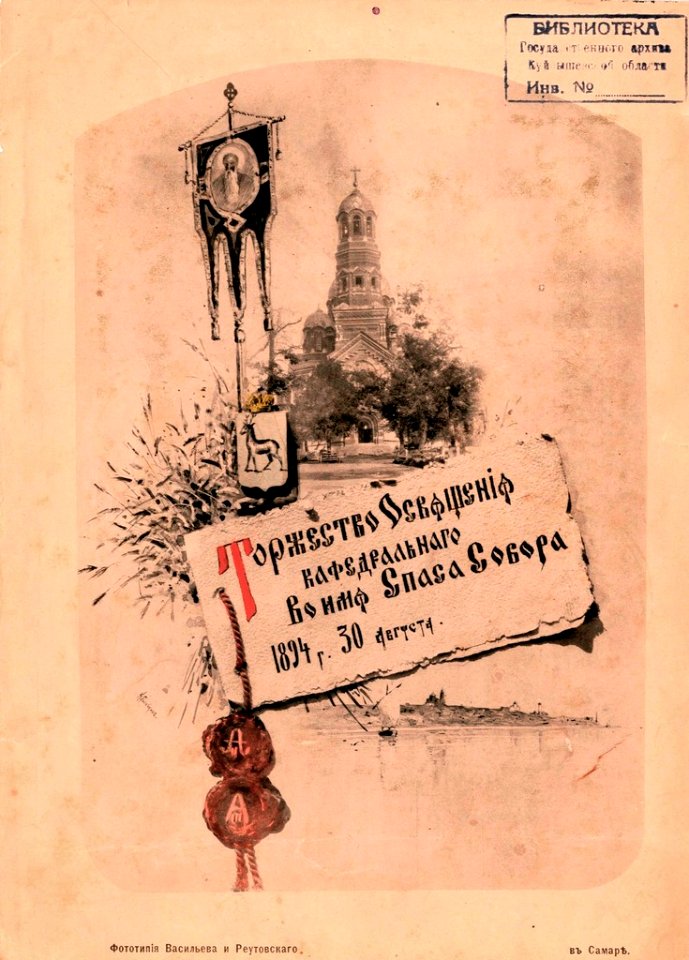 БИБЛИОТЕКА
Государственного архива
Куйбышевской области
Инв. №
Торжество Освѧщенія
кафедральнаго
во имѧ Спаса Собора
1894 г. 30 августа.
А
А
Фототипія Васильева и Реутовскаго.
въ Самарѣ.